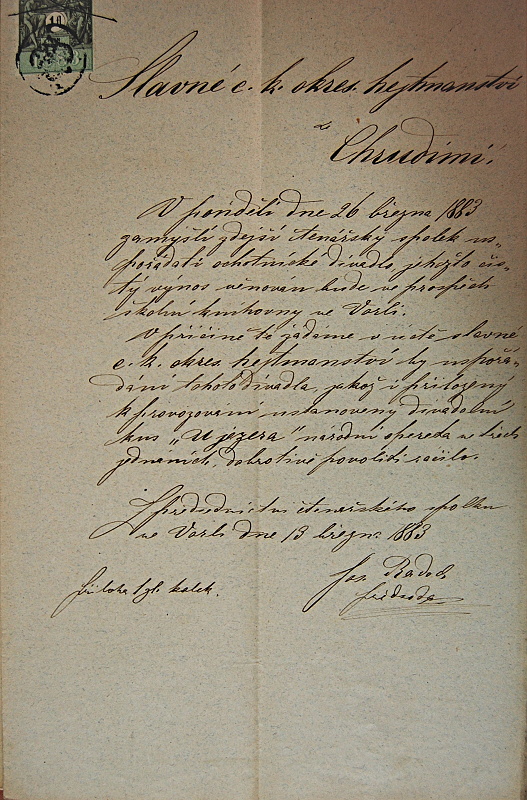 10
Slavné c. k. okres. hejtmanství
v
Chrudimi!
V pondělí dne 26 března 1883
zamýšlí zdejší čtenářský spolek us-
pořádati ochotnické divadlo, jehožto čis-
tý výnos věnován bude ve prospěch
školní knihovny ve Vorli.
V příčině té žádáme v úctě slavné
c. k. okres. hejtmanství by uspořá-
dání tohoto divadla, jakož i přiložený
k provozování ustanovený divadelní
kus „U jezera" národní opereda ve třech
jednáních, dobrotivě povoliti ráčilo.
Předsednictví čtenářského spolku
ve Vorli dne 13 března 1883
Jos.
předseda
příloha 1 zl. kolek.